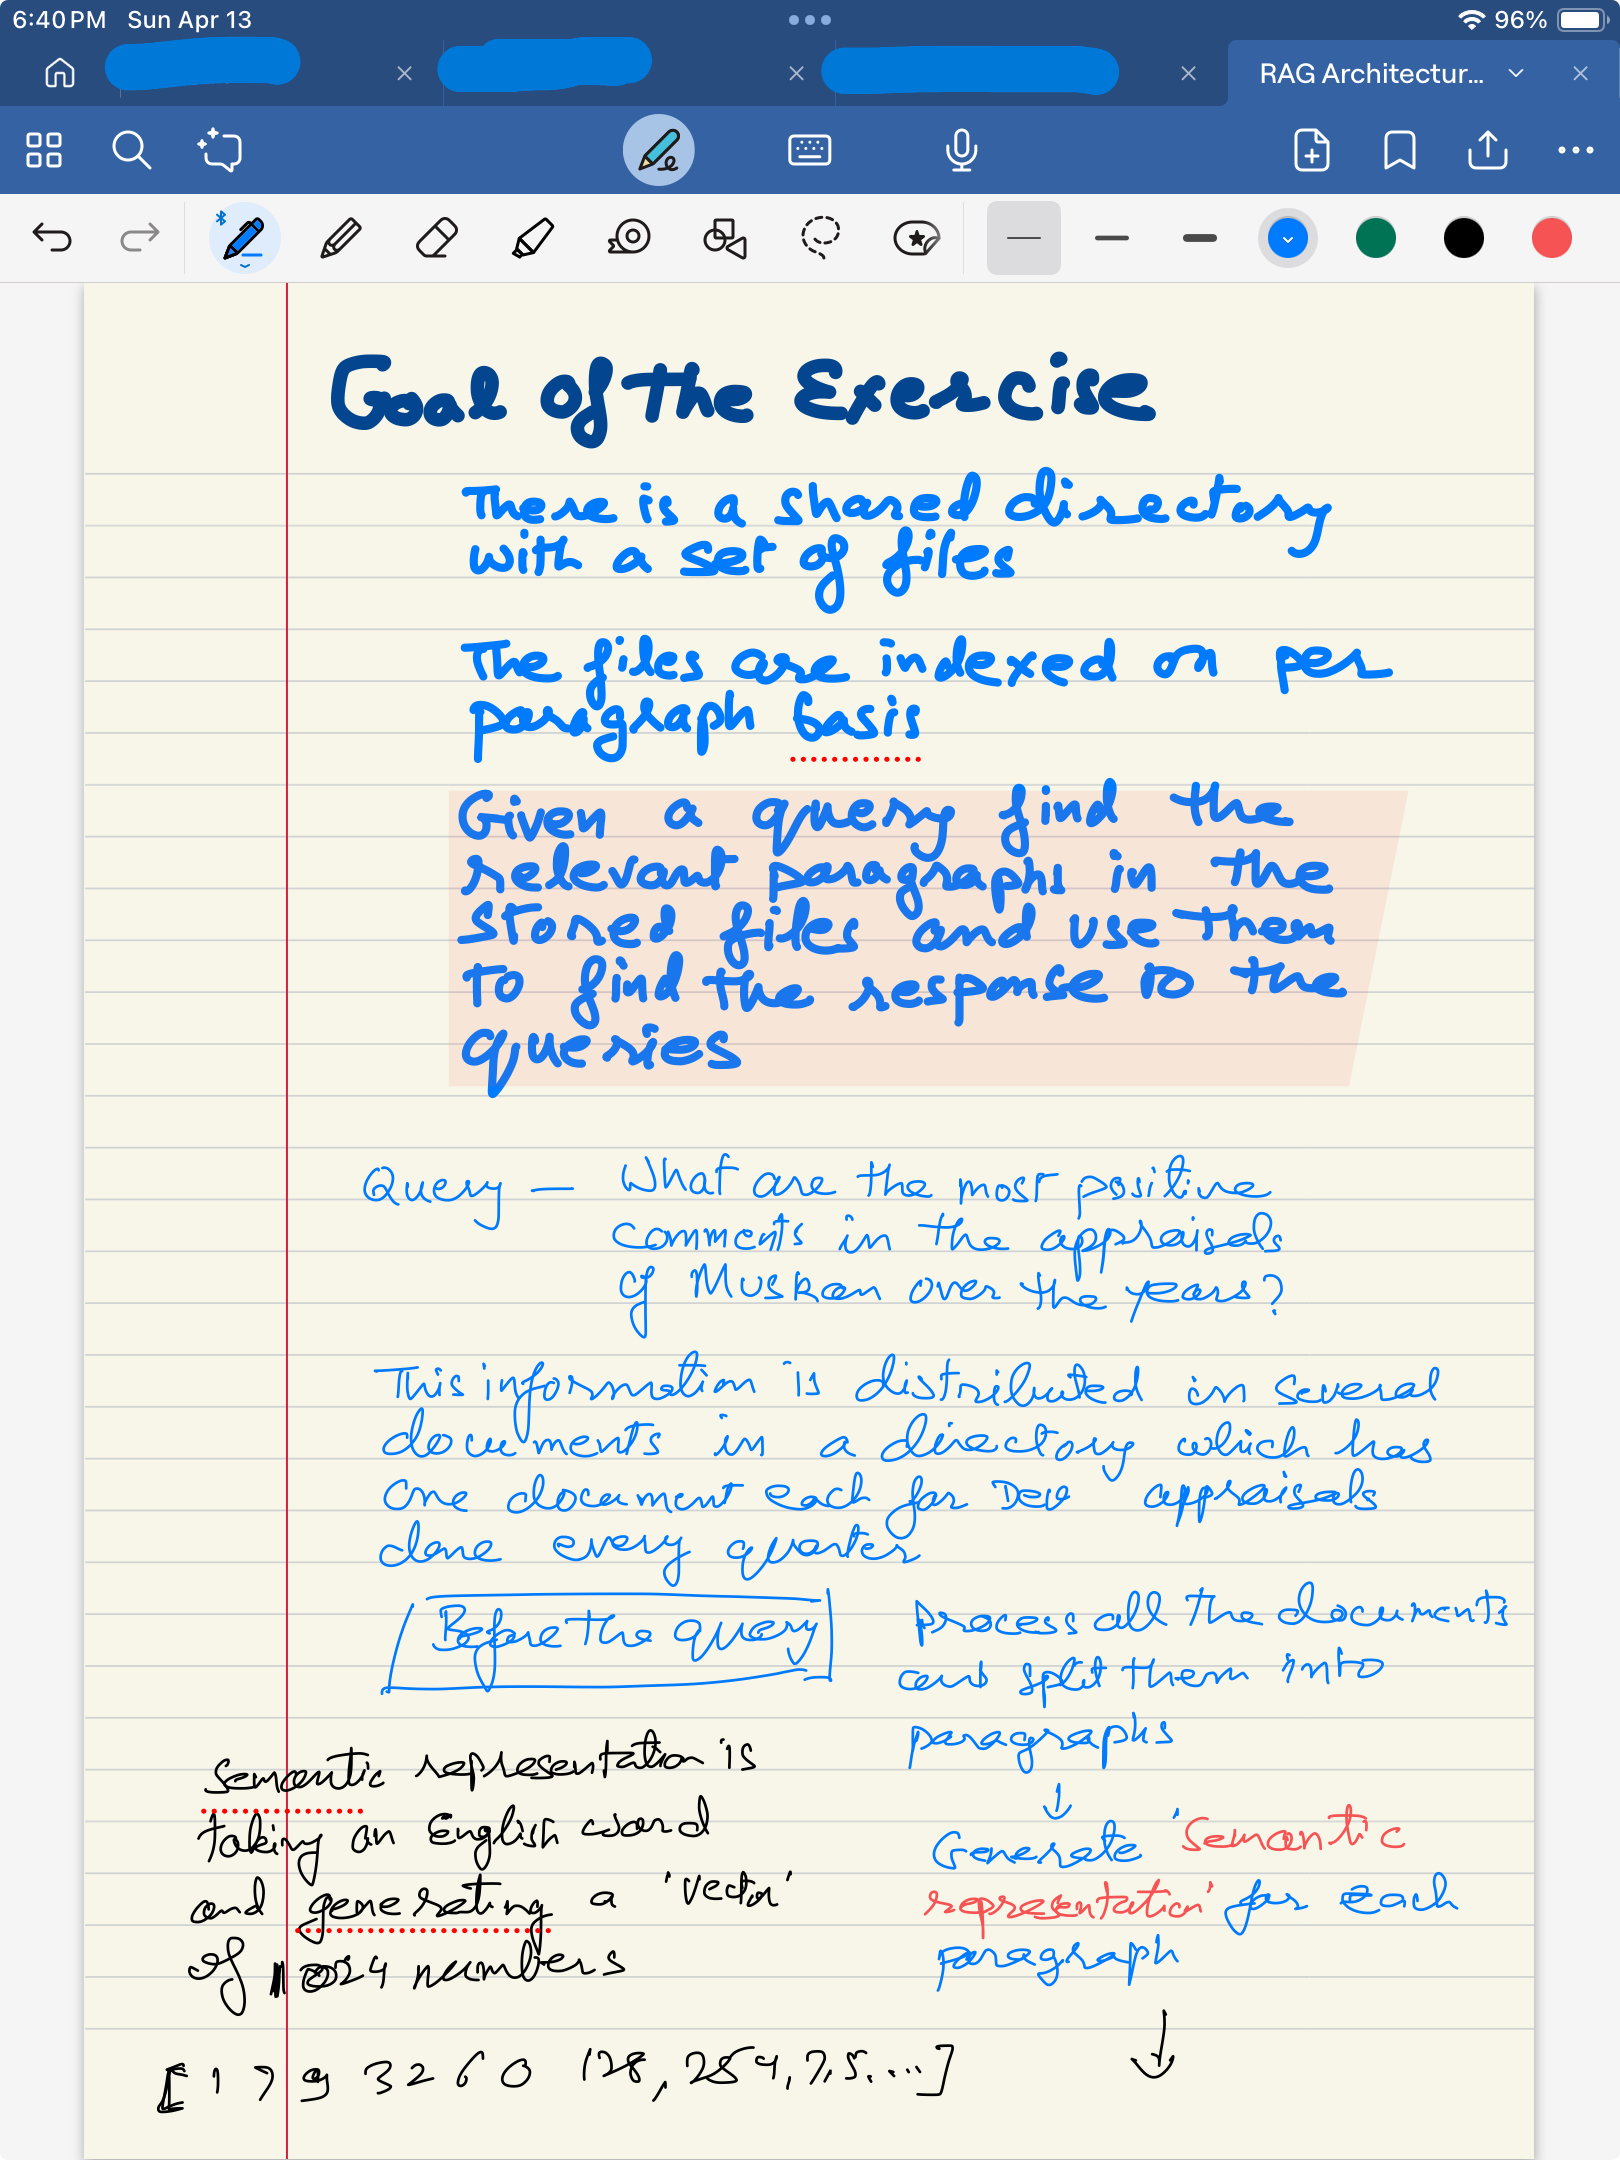 6:40 PM Sun Apr 13
96%
RAG Architectur...
Goal of the Exercise
There is a shared directory
with a set of files
The files are indexed on per
paragraph basis
Given a query find the
relevant paragraphs in the
stored files and use them
to find the response to the
queries
Query — What are the most positive
comments in the appraisals
of Muskan over the years?
This information is distributed in several
documents in a directory which has
one document each for Dev appraisals
done every quarter
Before the query
Process all the documents
and split them into
paragraphs
↓
Generate 'Semantic
representation' for each
paragraph
↓
Semantic representation is
taking an English word
and generating a 'vector'
of 1024 numbers
[ 1 7 9 32 60 128, 254, 7, 5, ...]